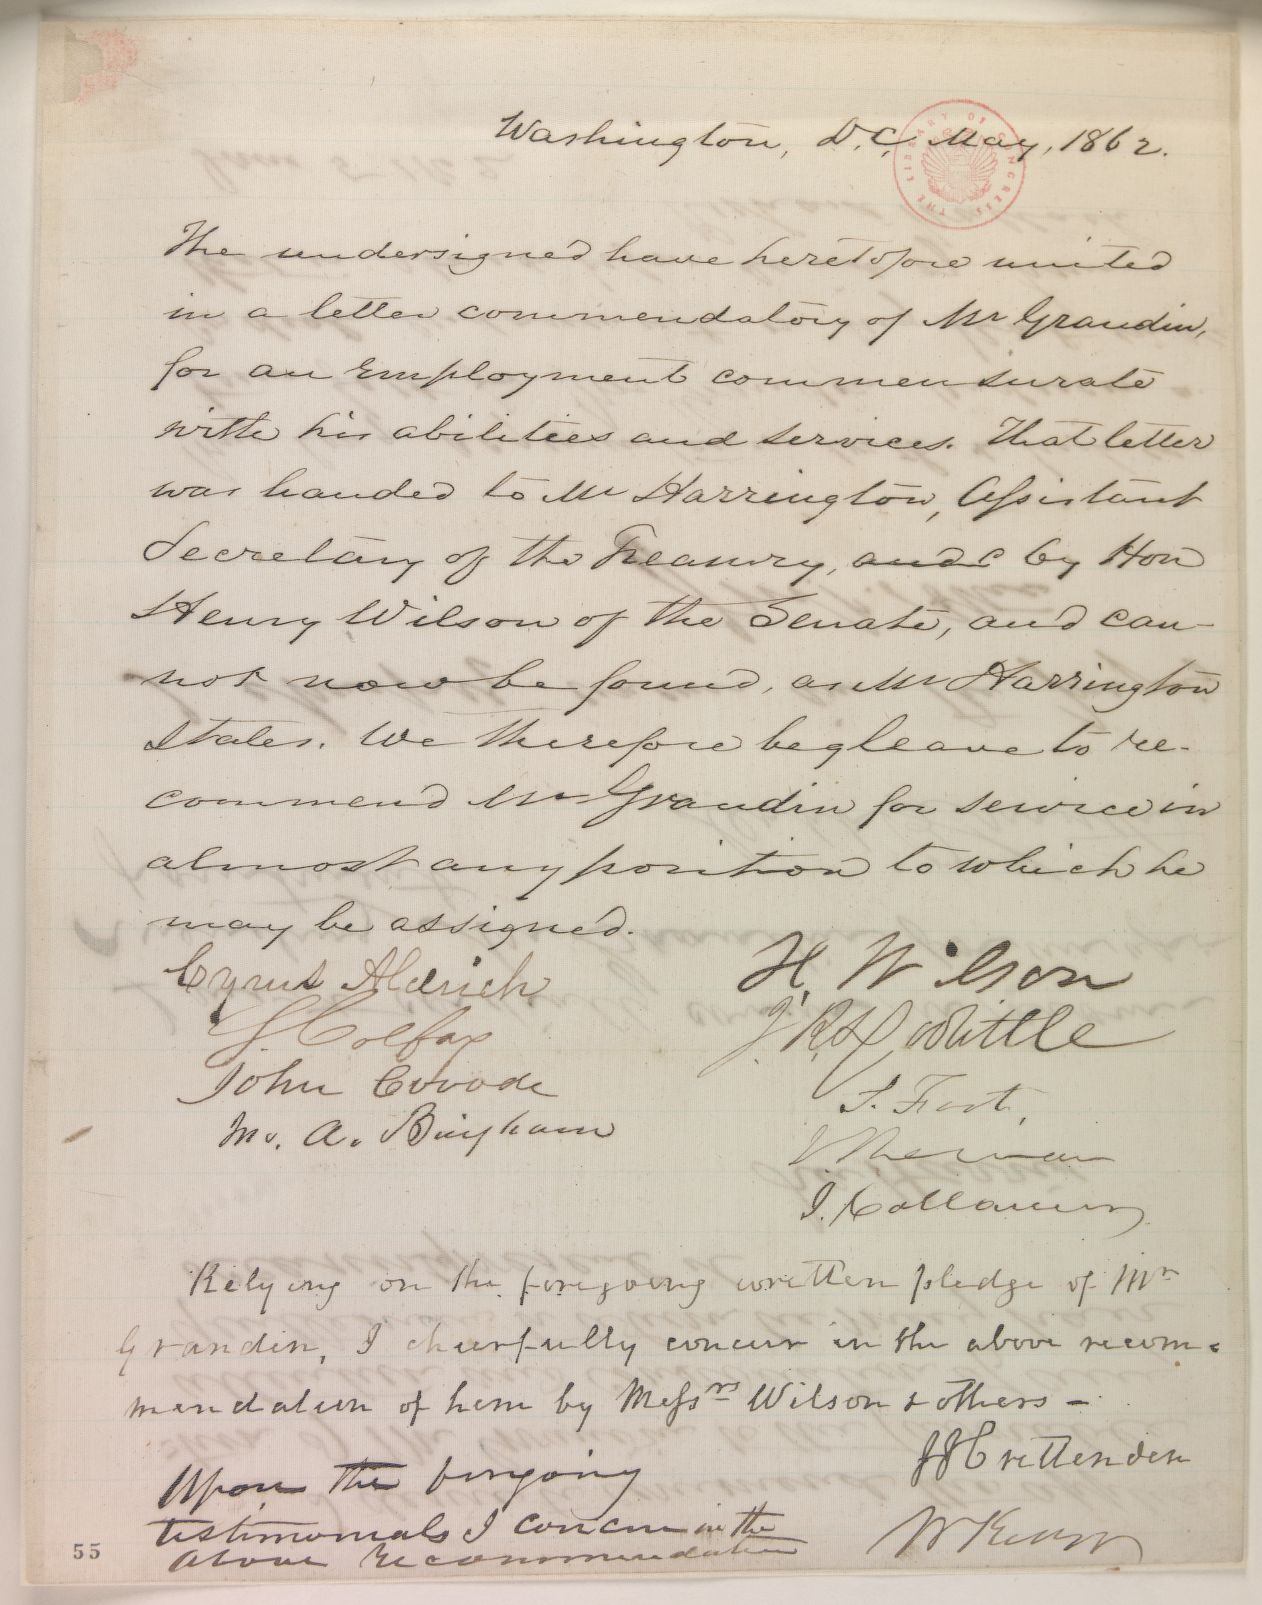 Washington, D.C. May, 1862.
THE LIBRARY OF CONGRESS
The undersigned have heretofore united
in a letter commendatory of Mr Grandin,
for an employment commensurate
with his abilities and services. That letter
was handed to Mr Harrington, Assistant
Secretary of the Treasury, by Hon
Henry Wilson of the Senate, and can-
not now be found, as Mr Harrington
states. We therefore beg leave to re-
commend Mr Grandin for service in
almost any position to which he
may be assigned.
Cyrus Aldrich
H. Wilson
S. Colfax
J. R. Doolittle
John Covode
S. Foot.
Jno. A. Bingham
J Sherman
J. Collamer
Relying on the foregoing written pledge of Mr
Grandin, I cheerfully concur in the above recom-
mendation of him by Messrs Wilson & others -
J J Crittenden
Upon the foregoing
testimonials I concur in the
above recommendation
55